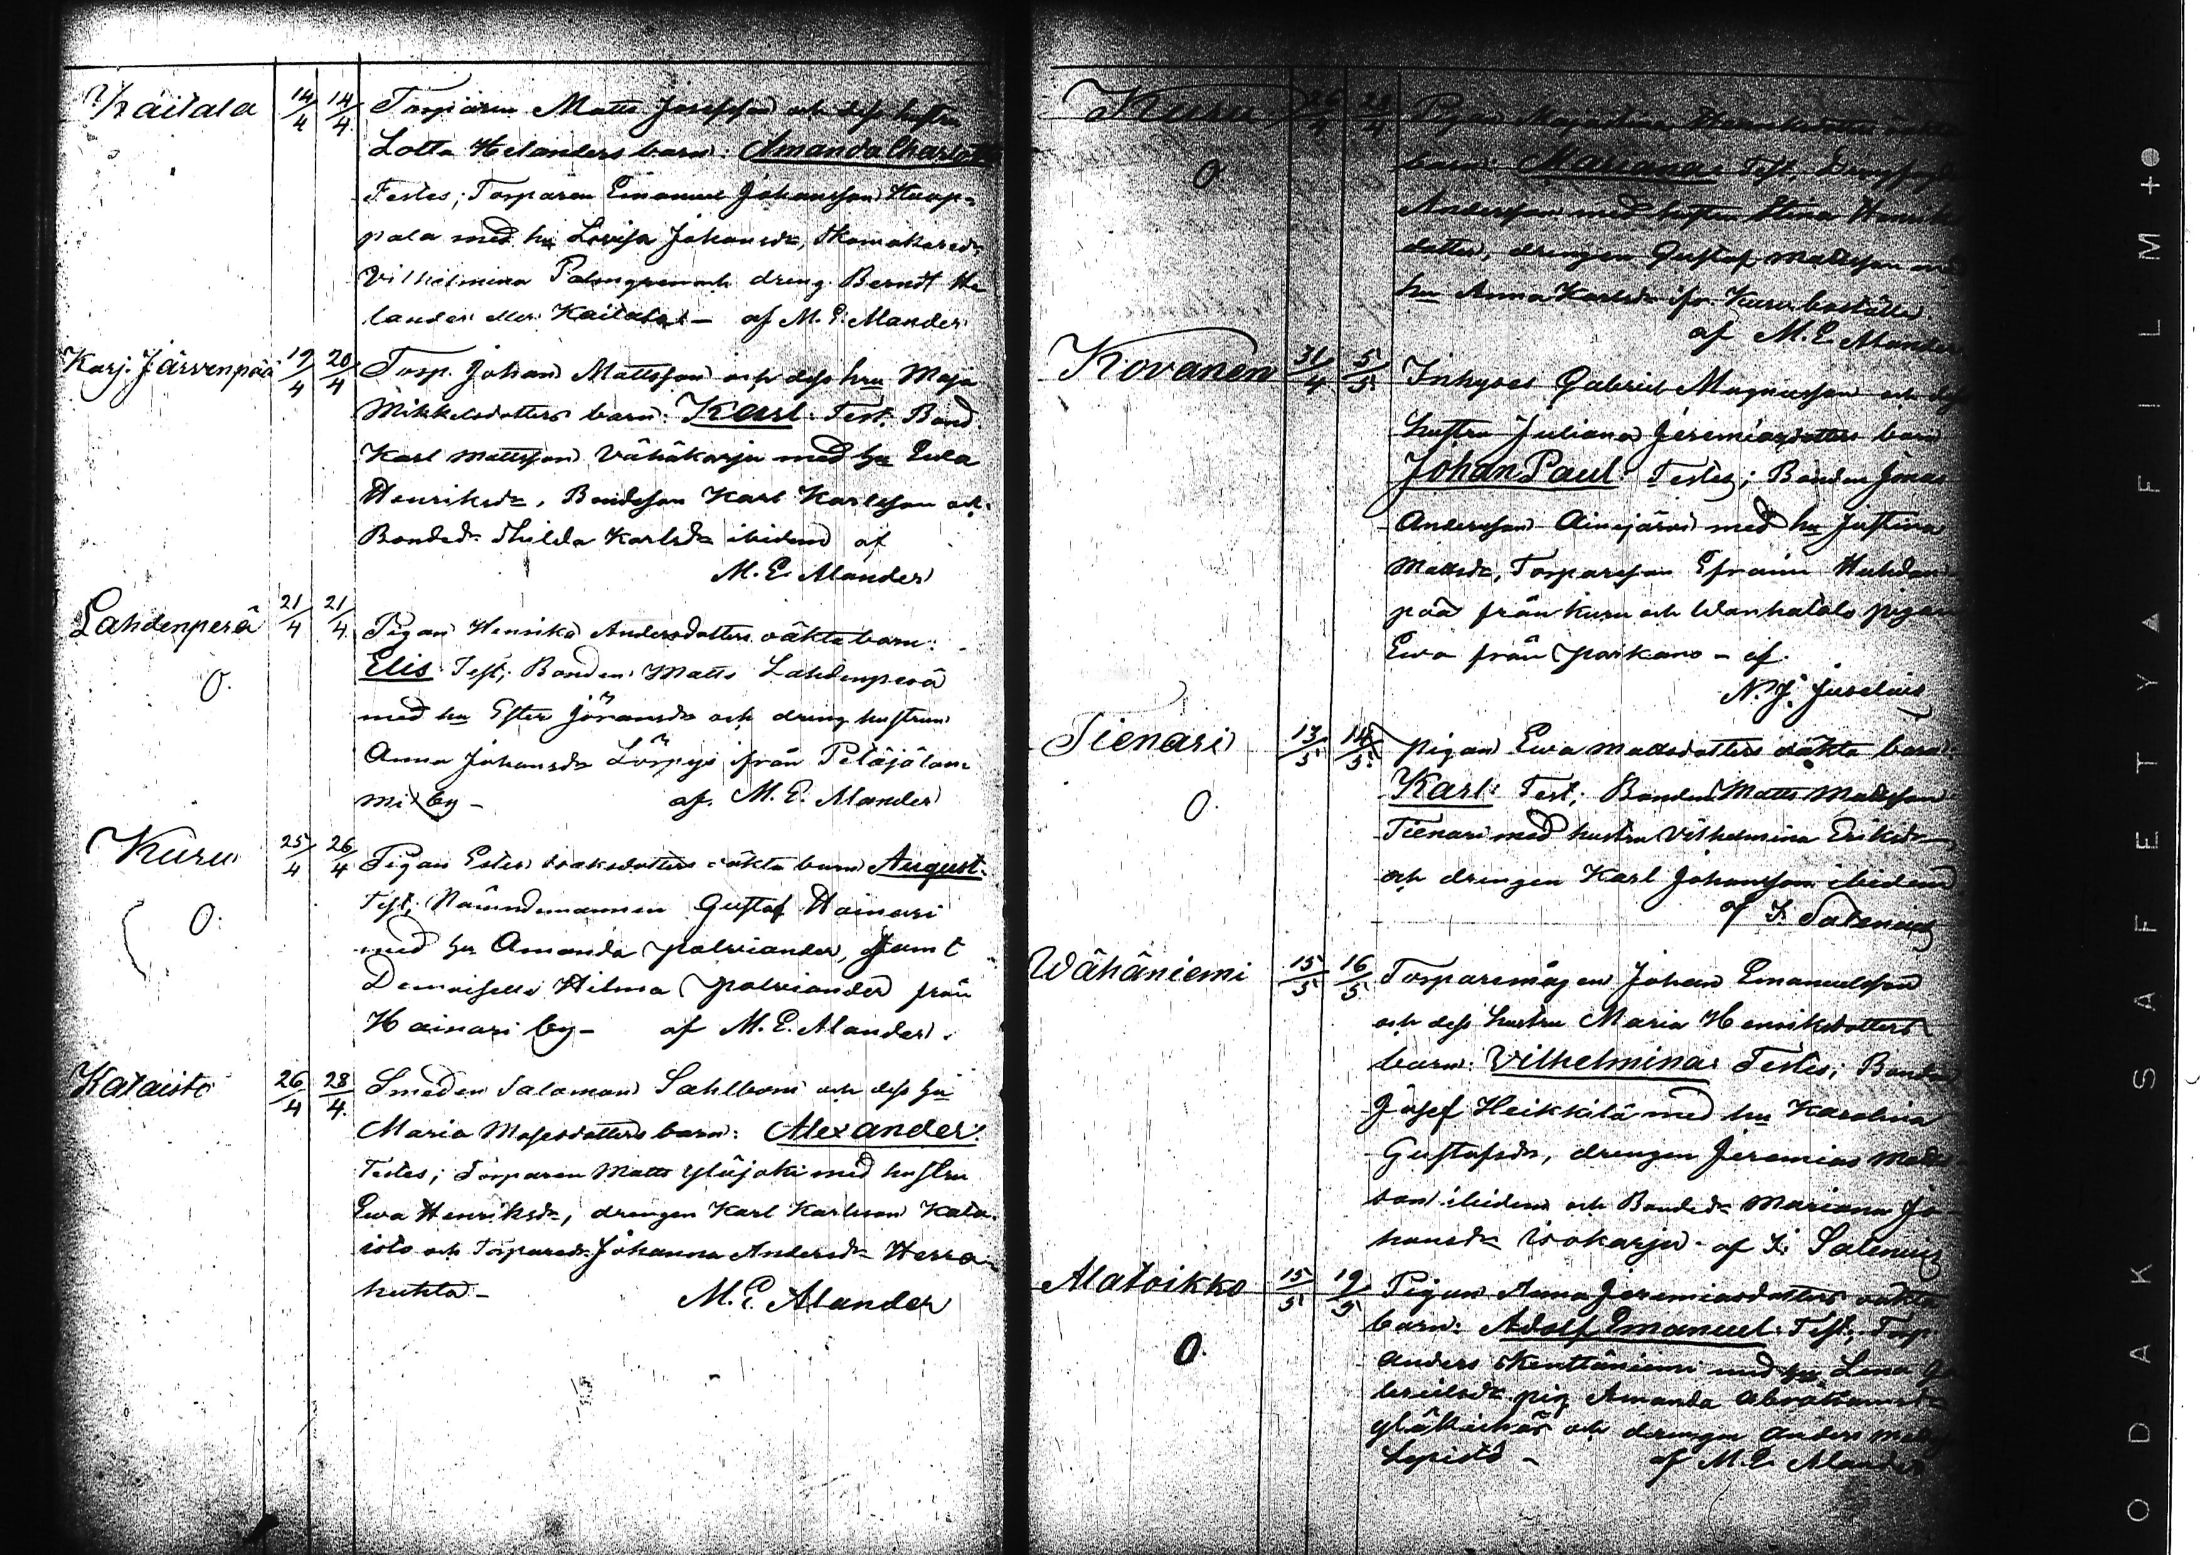 Kaitala 14/4 14/4 Torparen Matts Josefsson och dess hustru
Lotta Helanders barn: Amanda Charlotta
Testes; Torparen Emanuel Johansson Haap-
pala med hu Lovisa Johansdr, Skomakaredr
Vilhelmina Palmgren och dreng Berndt He
lander Kaitala – af M. E. Alander
Karj. Järvenpää 19/4 20/4 Torp. Johan Mattsson och dess hru Maja
Mikkelsdotters barn: Karl. Test. Bond.
Karl Mattsson Vähäkarju med hu Ewa
Henriksdr, Bondeson Karl Karlsson och
Bondedr Hilda Karlsdr ibidem af
M. E. Alander
Lahdenperä 21/4 21/4 Pigan Henrika Andersdotters oäkta barn:
O. Elis. Test; Bonden Matts Lahdenperä
med hu Ester Jöransdr och dreng hustrun
Anna Johansdr Lörpys från Petäjälam
mi by – af M. E. Alander
Kuru 25/4 26/4 Pigan Ester Isaksdotters oäkta barn August.
O. Test; Nämndemannen Gustaf Hainari
med hu Amanda Palviander, samt
Demoiselle Hilma Palviander från
Hainari by – af M. E. Alander.
Kataisto 26/4 28/4 Smeden Salomon Sahlbom och dess hu
Maria Mosesdotters barn: Alexander.
Testes; Torparen Matts Yläjoki med hustru
Ewa Henriksdr, drengen Karl Karlsson Kata-
isto och Torparedr Johanna Andersdr Herra-
huhta – M. E. Alander
Kuru 26/4 28/4 Pigan Maja Stina oäkta
O barn: Mariana: Test,
Andersson med hustru Stina Henriks
dotter, drengen Gustaf Mattsson med
hu Anna Karlsdr ifr. Kuru boställe
af M. E. Alander
Kovanen 31/4 5/5 Inhyses Gabriel Magnusson och dess
hustru Juliana Jeremiasdotters barn
Johan Paul: Testes; Bonden Jonas
Andersson Ainejärvi med hu Justina
Mattsdr, Torpareson Efraim Huhdan-
pää från Kuru och Wanhatalo pigan
Ewa från Parkano – af.
N. J. Juselius
Tienari 13/5 14/5 Pigan Ewa Mattsdotters oäkta barn:
O. Karl: Test; Bonden Matts Mattsson
Tienari med hustru Vilhelmina Eriksdr
och drengen Karl Johansson ibidem
af F. Salenius
Wähäniemi 15/5 16/5 Torparemågen Johan Emanuelsson
och dess hustru Maria Henriksdotters
barn: Vilhelmina: Testes; Bonden
Josef Heikkilä med hu Karolina
Gustafsdr, drengen Jeremias Matts-
son ibidem och Bondedr Mariana Jo-
hansdr Isokarju – af F. Salenius
Alatoikko 15/5 19/5 Pigan Anna Jeremiasdotters oäkta
O. barn: Adolf Emanuel: Test; Torp
Anders Kenttäniemi med hu Lena Ga
brielsdr pig Amanda Abrahamsdr
och drengen Anders
Lepistö – af M. E. Alander
KODAK SAFETY ▲ FILM +●